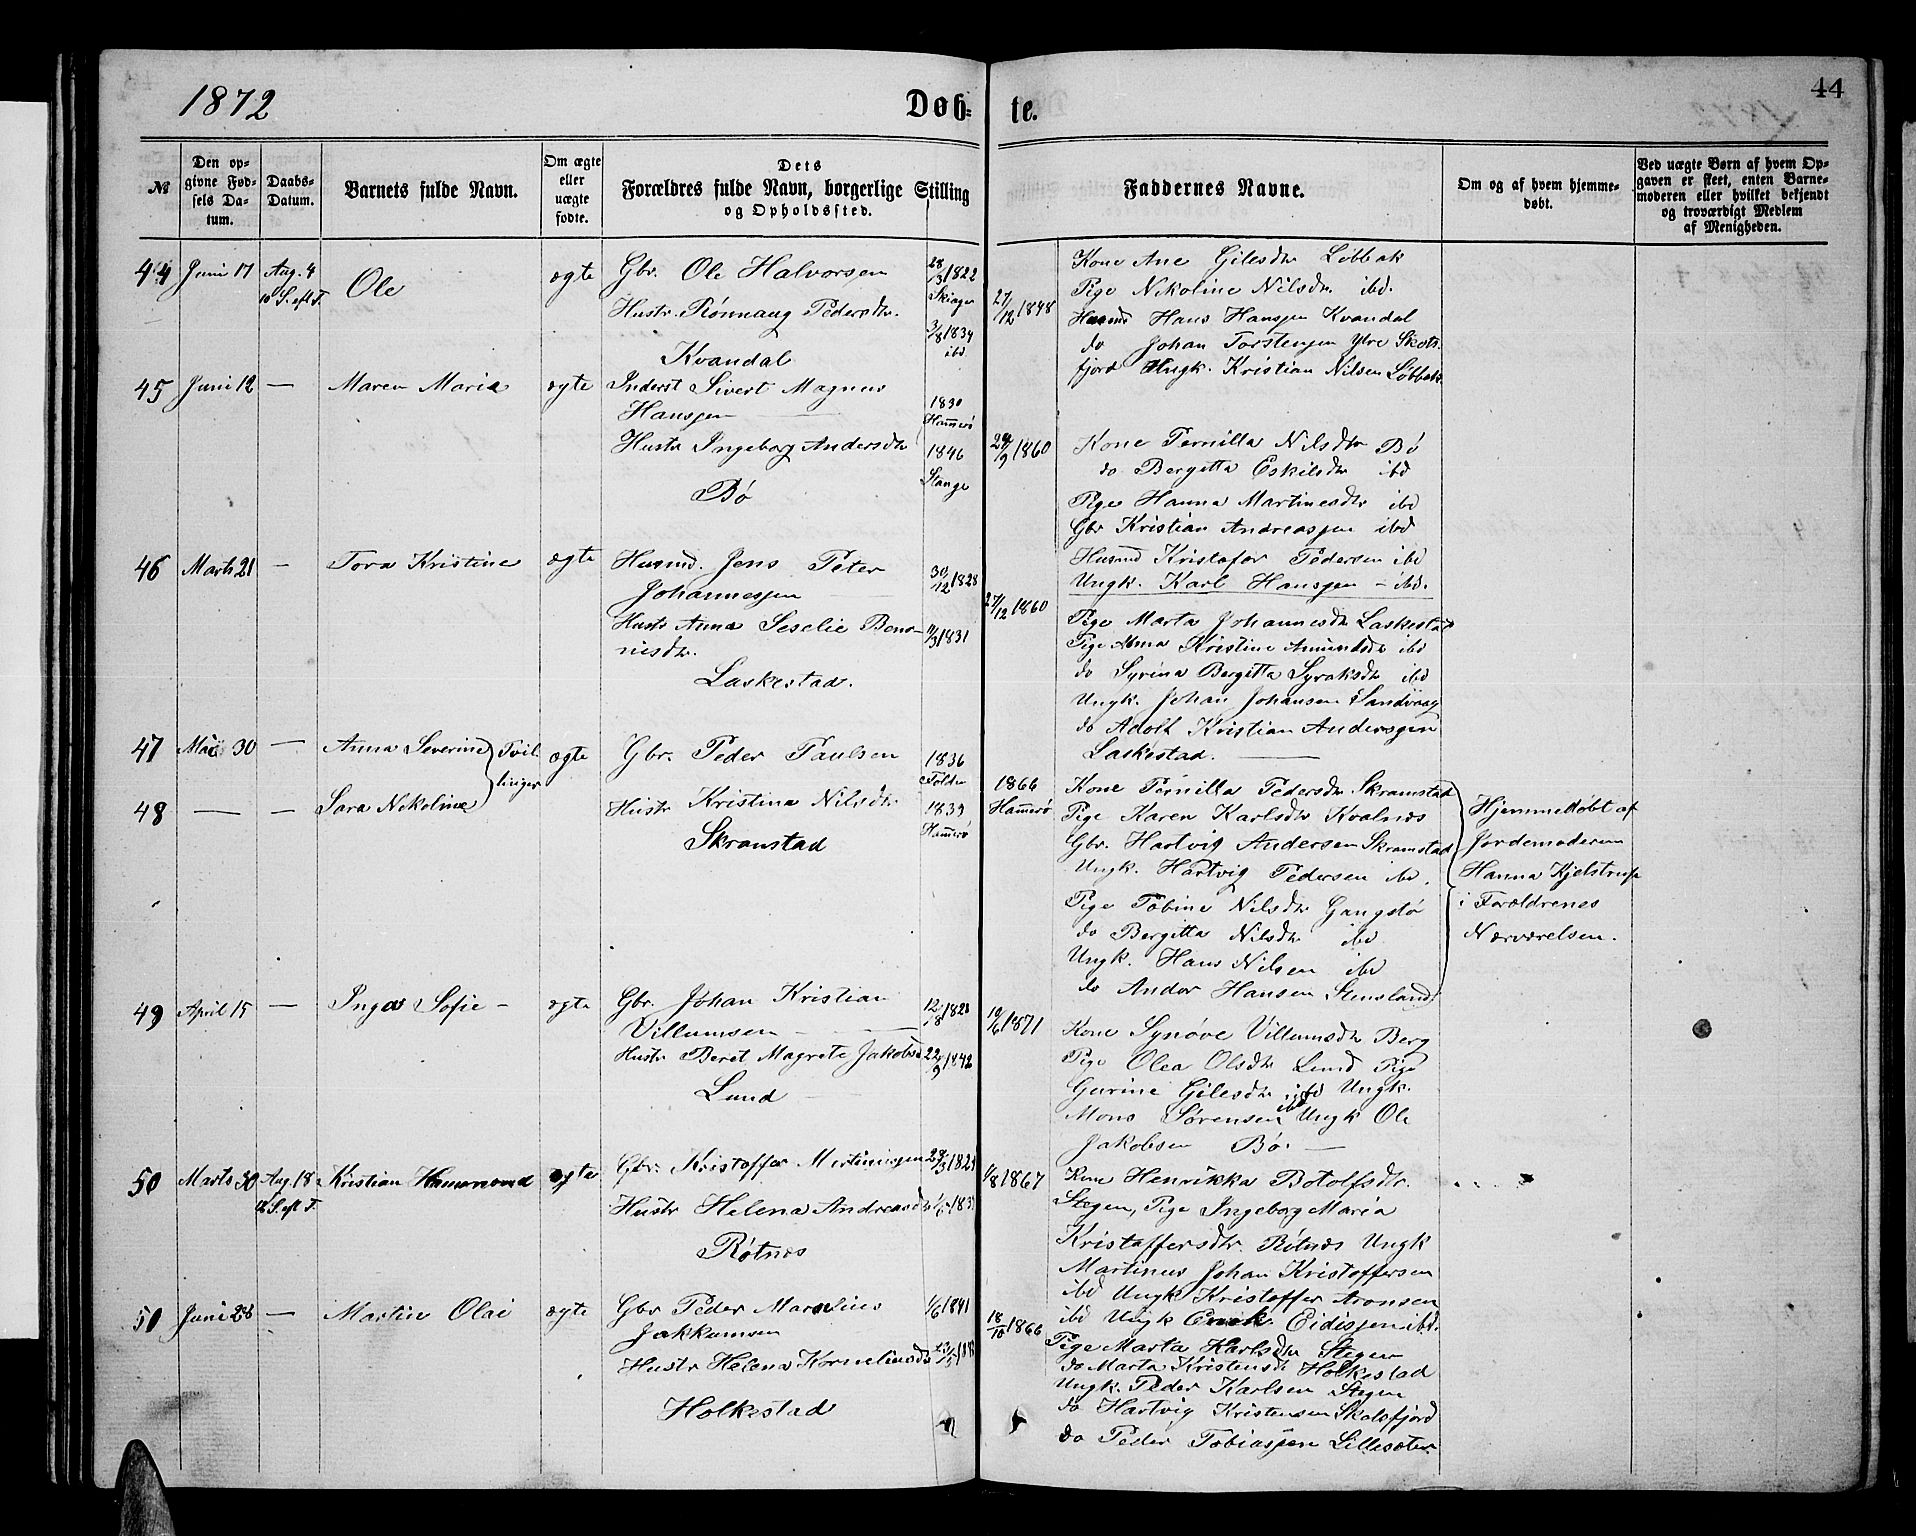 1872
Døb-
te.
44
№
Den op-
givne Fød-
sels Da-
tum.
Daabs-
Datum.
Barnets fulde Navn.
Om ægte
eller
uægte
fødte.
Dets
Forældres fulde Navn, borgerlige Stilling
og Opholdssted.
Faddernes Navne.
Om og af hvem hjemme-
døbt.
Ved uægte Børn af hvem Op-
gaven er skeet, enten Barne-
moderen eller hvilket bekjendt
og troværdigt Medlem
af Menigheden.
44 Juni 17 Aug. 4
10 S. eft T.
Ole
ægte
Gbr. Ole Halvorsen
Hustr. Rönnaug Pedersdtr.
Kvandal
28/3 1822
3/8 1834
ibd
27/12 1848
Kone Ane Gilesdtr Løbbak
Pige Nikoline Nilsdtr ibd.
Husmd Hans Hansen Kvandal
do Johan Torstensen Ytre Skots-
fjord Ungk. Kristian Nilsen Løbbak
45 Juni 12 —
Maren Maria
ægte
Inderst Sivert Magnus
Hansen
Hustr Ingeborg Andersdtr
Bø
1830
Hamerø
1846
Stange
24/9 1860
Kone Pernilla Nilsdtr Bø
do Bergitta Eskilsdtr ibd
Pige Hanna Martinesdtr ibd
Gbr Kristian Andreassen ibd
Husmd Kristofer Pedersen ibd
Ungk. Karl Hansen - ibd.
46 Marts 21 —
Tora Kristine
ægte
Husmd. Jens Peter
Johannessen
Hustr Anna Seselie Beno-
nisdtr.
Laskestad.
30/12 1828
1831
27/12 1860
Pige Marta Johannesdtr Laskestad
Pige Anna Kristine Amundsdtr ibd
do Syrina Bergitta Syraksdtr ibd
Ungk. Johan Johansen Sandvaag
do Adolf Kristian Anderssen
Laskestad.
47 Mai 30 —
Anna Severine } Tvil-
linger
ægte
Gbr. Peder Paulsen
1836
Folden
48 — —
Sara Nikoline
Hustr Kristina Nilsdtr
Skranstad
1839
Hamerø
1866
Hamerø
Kone Pernilla Pedersdtr Skranstad
Pige Karen Karlsdtr Kvalnes
Gbr. Hartvig Andersen Skranstad
Ungk. Hartvig Pedersen ibd.
Pige Tobine Nilsdtr Gangstø
do Bergitta Nilsdtr ibd
Ungk. Hans Nilsen ibd
do Andor Hansen Stensland
Hjemmedøbt af
Jordemoderen
Hanna Kjelstrup
i Forældrenes
Nærværelsen.
49 April 15 —
Inga Sofie -
ægte
Gbr. Johan Kristian
Villumsen
Hustr Beret Magrete Jakobsd
Lund
22/9 1842
19/6 1871
Kone Synøve Villumsdtr Berg
Pige Olea Olsdtr Lund Pige
Gurine Gilesdtr ibd Ungk.
Mons Sørensen ibd Ungk Ole
Jakobsen Bø. —
50 Marts 30 Aug. 18
12 S. eft T.
Kristian Hamonond
ægte
Gbr. Kristoffer Martinussen
Hustr Helena Andreasdtr
Røtnes
1/8 1867
Kone Henrikka Botolfsdtr.
Stegen, Pige Ingeborg Maria
Kristoffersdtr. Røtnes Ungk
Martinus Johan Kristoffersen
ibd Ungk Kristoffer Aronsen
ibd Ungk Enok Eidissen ibd.
51 Juni 28 —
Martin Olai
ægte
Gbr Peder Marelius
Jakkumsen
Hustr Helena Korneliusdtr
Holkestad
1/6 1841
18/10 1866
Pige Marta Karlsdtr Stegen
do Marta Kristensd Holkestad
Ungk. Peder Karlsen Stegen
do Hartvig Kristensen Skotsfjord
do Peder Tobiassen Lillesæter